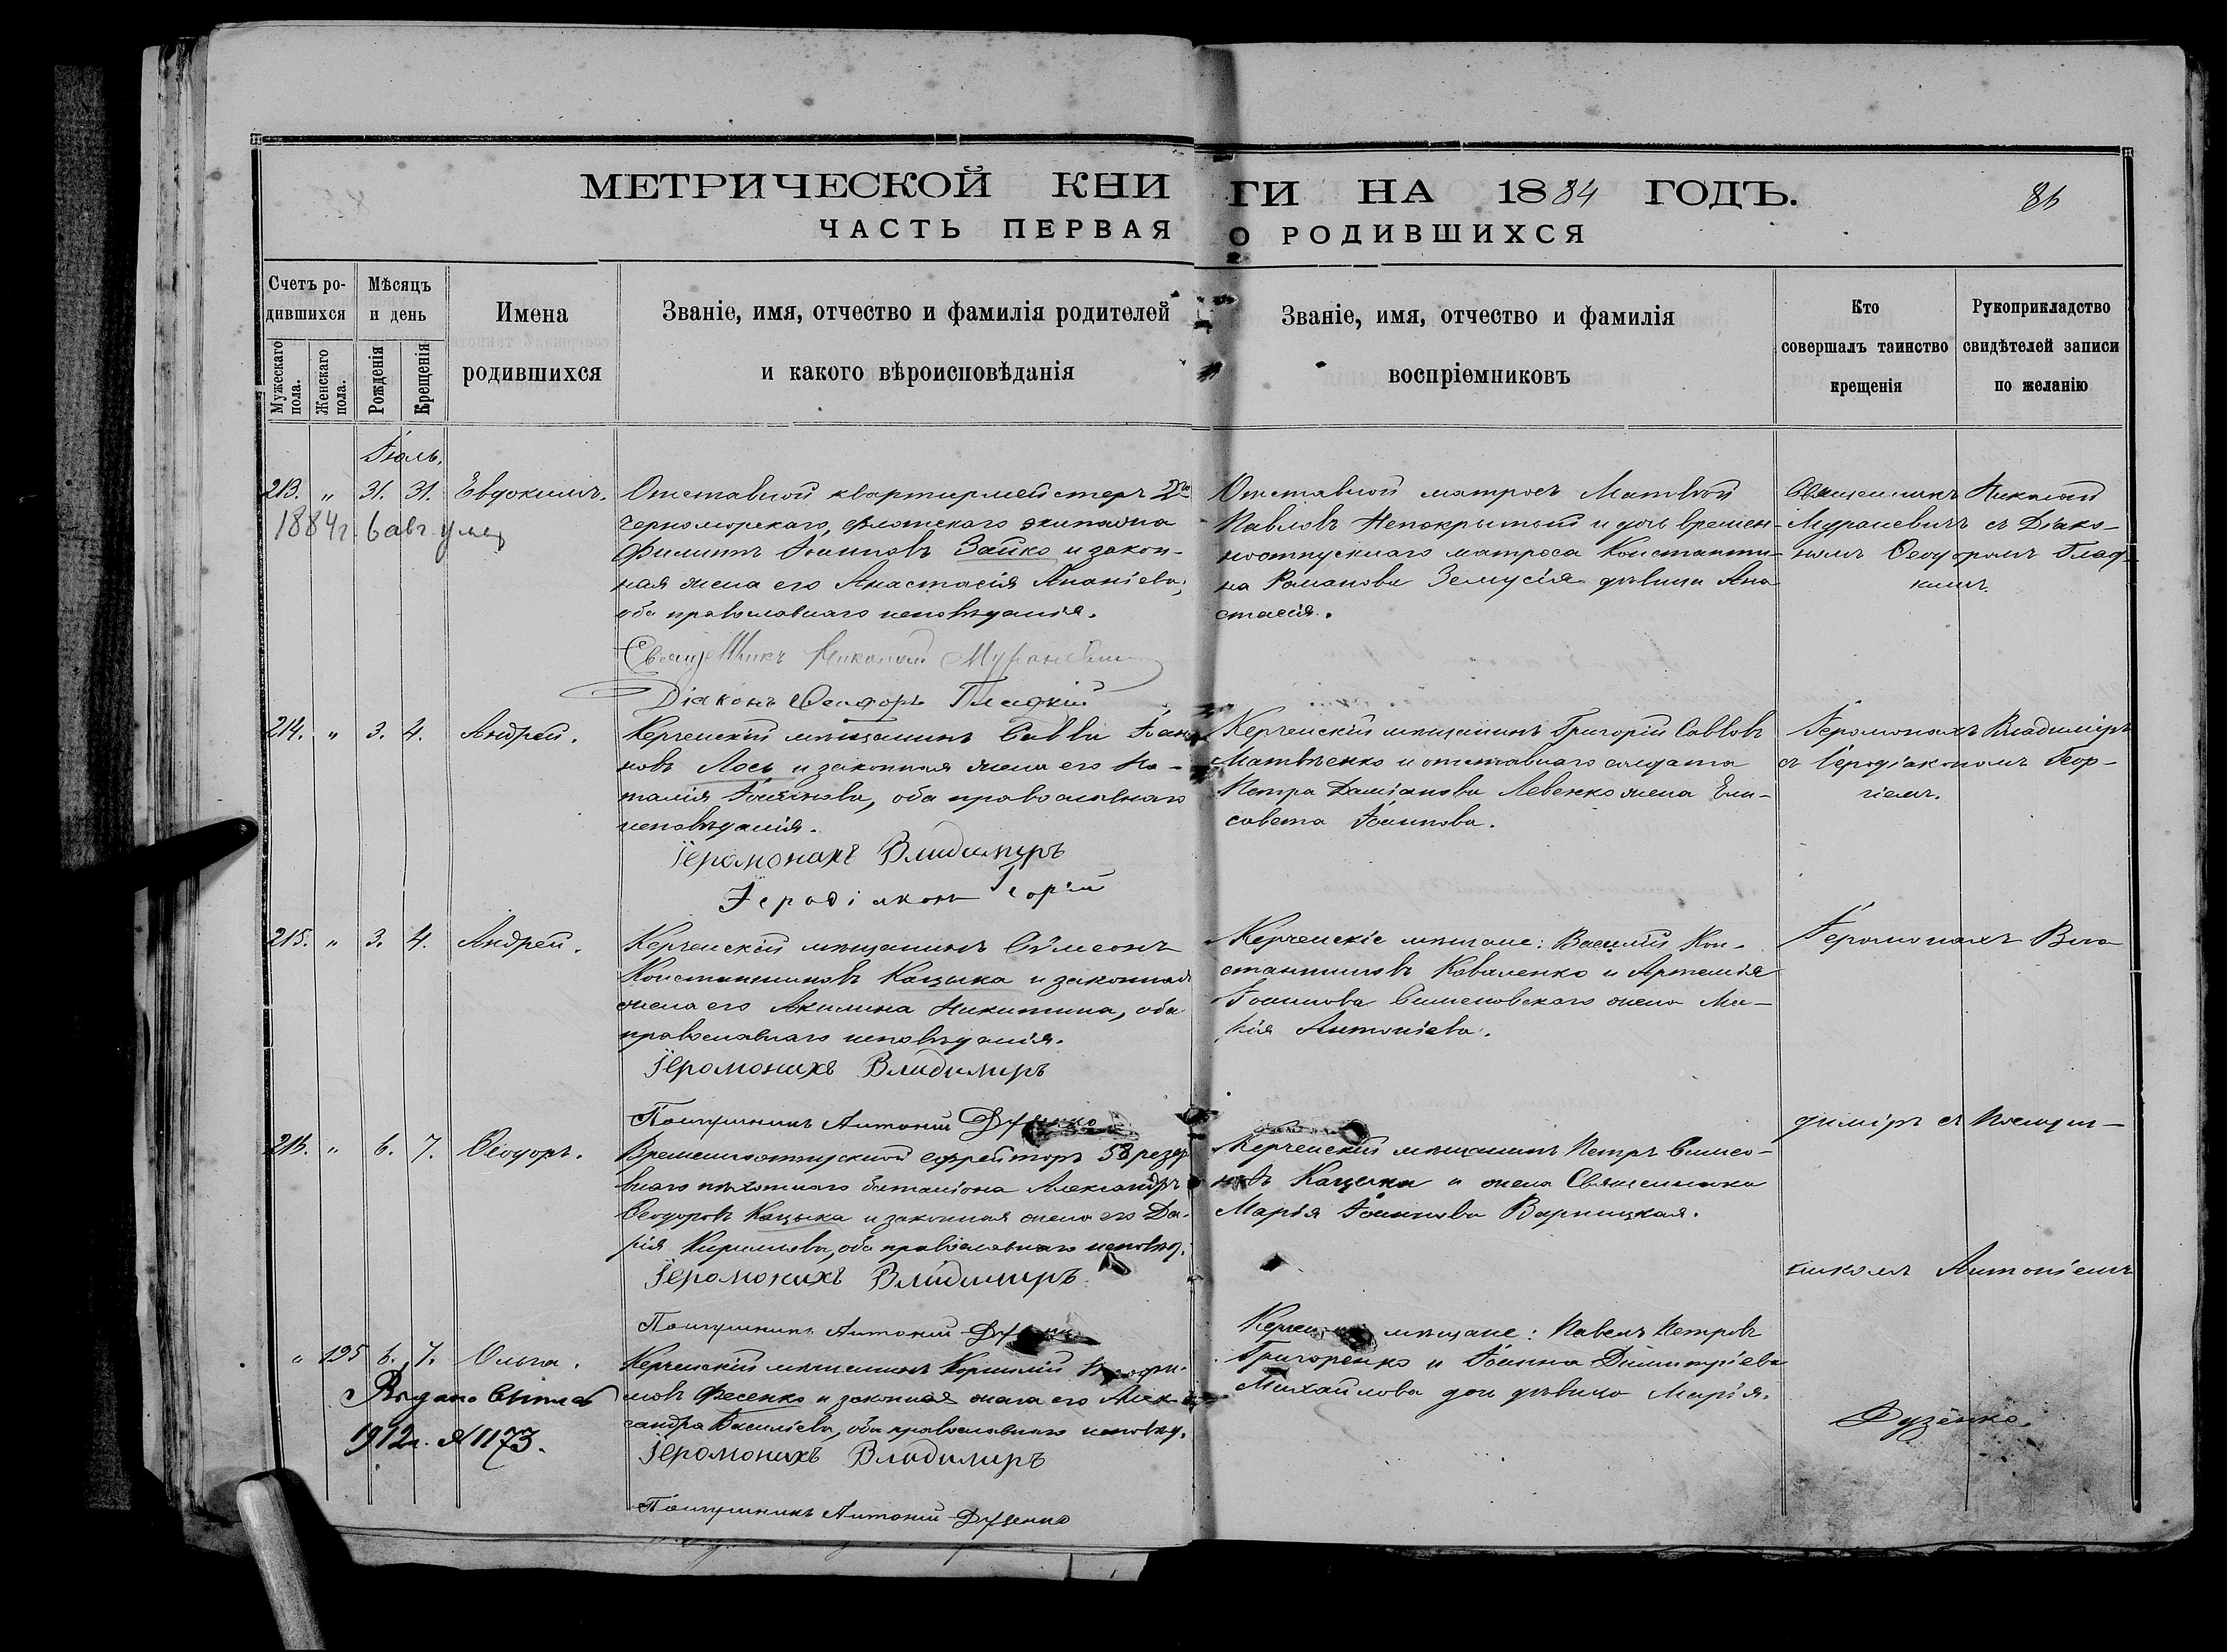 МЕТРИЧЕСКОЙ КНИГИ НА 1884 ГОДЪ.
86
ЧАСТЬ ПЕРВАЯ О РОДИВШИХСЯ
Счетъ родившихся
Мужескаго пола.
Женскаго пола.
Мѣсяцъ и день
Рожденія
Крещенія
Имена
родившихся
Званіе, имя, отчество и фамилія родителей
и какого вѣроисповѣданія
Званіе, имя, отчество и фамилія
воспріемниковъ
Кто
совершалъ таинство
крещенія
Рукоприкладство
свидѣтелей записи
по желанію
Іюль.
213. " 31. 31. Евдокимъ.
1884г. 6 авг. умер
Отставной квартирмейстеръ 2го
Черноморскаго, флотскаго экипажа
Филиппъ Іоанновъ Зайко и закон-
ная жена его Анастасія Ананіева,
оба православнаго исповѣданія.
Священникъ Николай Мураневичъ
Діаконъ Ѳеодоръ Гладкій
Отставной матросъ Матвей
Павловъ Непокрытый и дочь времен-
ноотпускнаго матроса Константи-
на Романова Земусія дѣвица Ана
стасія.
Священникъ Николай
Мураневичъ съ Діако-
номъ Ѳеодоромъ Глад-
кимъ.
214. " 3. 4. Андрей.
Керченскій мѣщанинъ Савва Іоан
новъ Лось и законная жена его На-
талія Іоаннова, оба православнаго
исповѣданія.
Іеромонахъ Владимиръ
Іеродіаконъ Георгій
Керченскій мѣщанинъ Григорій Савовъ
Матвѣенко и отставнаго солдата
Петра Даміанова Левенко жена Ели-
савета Іоаннова.
Іеромонахъ Владиміръ
съ Іеродіакономъ Геор-
гіемъ.
215. " 3. 4. Андрей.
Керченскій мѣщанинъ Сѵмеонъ
Константиновъ Кацыка и законная
жена его Акилина Никитина, оба
православнаго исповѣданія.
Іеромонахъ Владимиръ
Послушникъ Антоній Дузенко
Керченскіе мѣщане: Василій Кон-
стантиновъ Коваленко и Артемія
Іоаннова Сименовскаго жена Ма-
рія Антоніева.
Іеромонахъ Вла
216. " 6. 7. Ѳеодоръ.
Временноотпускной ефрейторъ 58 резер
внаго пѣхотнаго баталіона Александръ
Ѳеодоровъ Кацыка и законная жена его Да-
рія Кириллова, оба православнаго исповѣд.
Іеромонахъ Владимиръ
Послушникъ Антоній
Керченскій мѣщанинъ Петръ Симео-
новъ Кацыка и жена Священника
Марія Іоаннова Варницкая.
диміръ съ Послуш-
никомъ Антоніемъ
" 195 6. 7. Ольга.
Выдано
1912г. № 1173.
Керченскій мѣщанинъ Корнилій
Фесенко и законная жена его Алек
сандра Василіева, оба православнаго исповѣд.
Іеромонахъ Владимиръ
Послушникъ Антоній Дузенко
мѣщане: Павелъ Петровъ
Григоренко и Іоанна Димитріева
Михайлова дочь дѣвица Марія.
Дузенко.